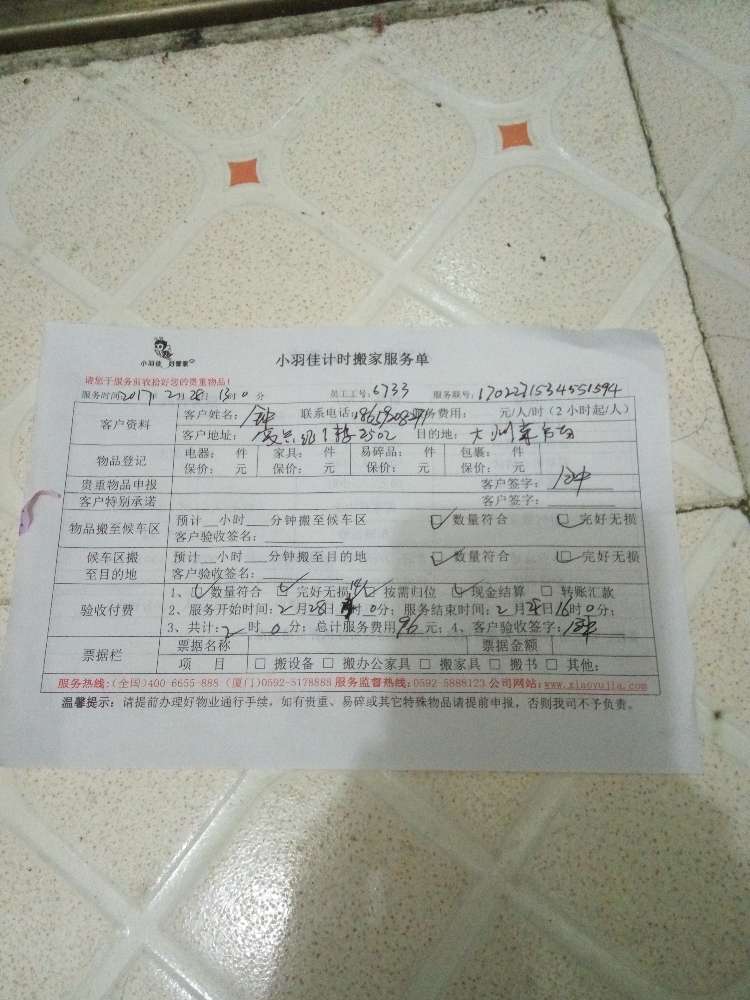 小羽佳 好管家
小羽佳计时搬家服务单
请您于服务前收拾好您的贵重物品！
服务时间2017年2月28日13时0分 员工工号：6733 服务联号：1702271534551594
客户资料 客户姓名：钟 联系电话： 服务费用： 元/人/时（2小时起/人）
客户地址： 2502 目的地：
物品登记 电器： 件 家具： 件 易碎品： 件 包裹： 件
保价： 元 保价： 元 保价： 元 保价： 元
贵重物品申报 客户签字：钟
客户特别承诺 客户签字：
物品搬至候车区 预计__小时___分钟搬至候车区 ☑数量符合 ☑完好无损
客户验收签名：
候车区搬至目的地 预计__小时___分钟搬至目的地 ☑数量符合 ☑完好无损
客户验收签名：
验收付费 1、☑数量符合 ☑完好无损 ☑按需归位 ☑现金结算 □转账汇款
2、服务开始时间：2月28日14时0分；服务结束时间：2月28日16时0分；
3、共计：2时0分；总计服务费用96元；4、客户验收签字：钟
票据栏 票据名称 票据金额
项 目 □搬设备 □搬办公家具 □搬家具 □搬书 □其他：
服务热线：(全国)400-6655-888 (厦门)0592-5178885 服务监督热线：0592-5888123 公司网站：www.xiaoyujia.com
温馨提示：请提前办理好物业通行手续，如有贵重、易碎或其它特殊物品请提前申报，否则我司不予负责。